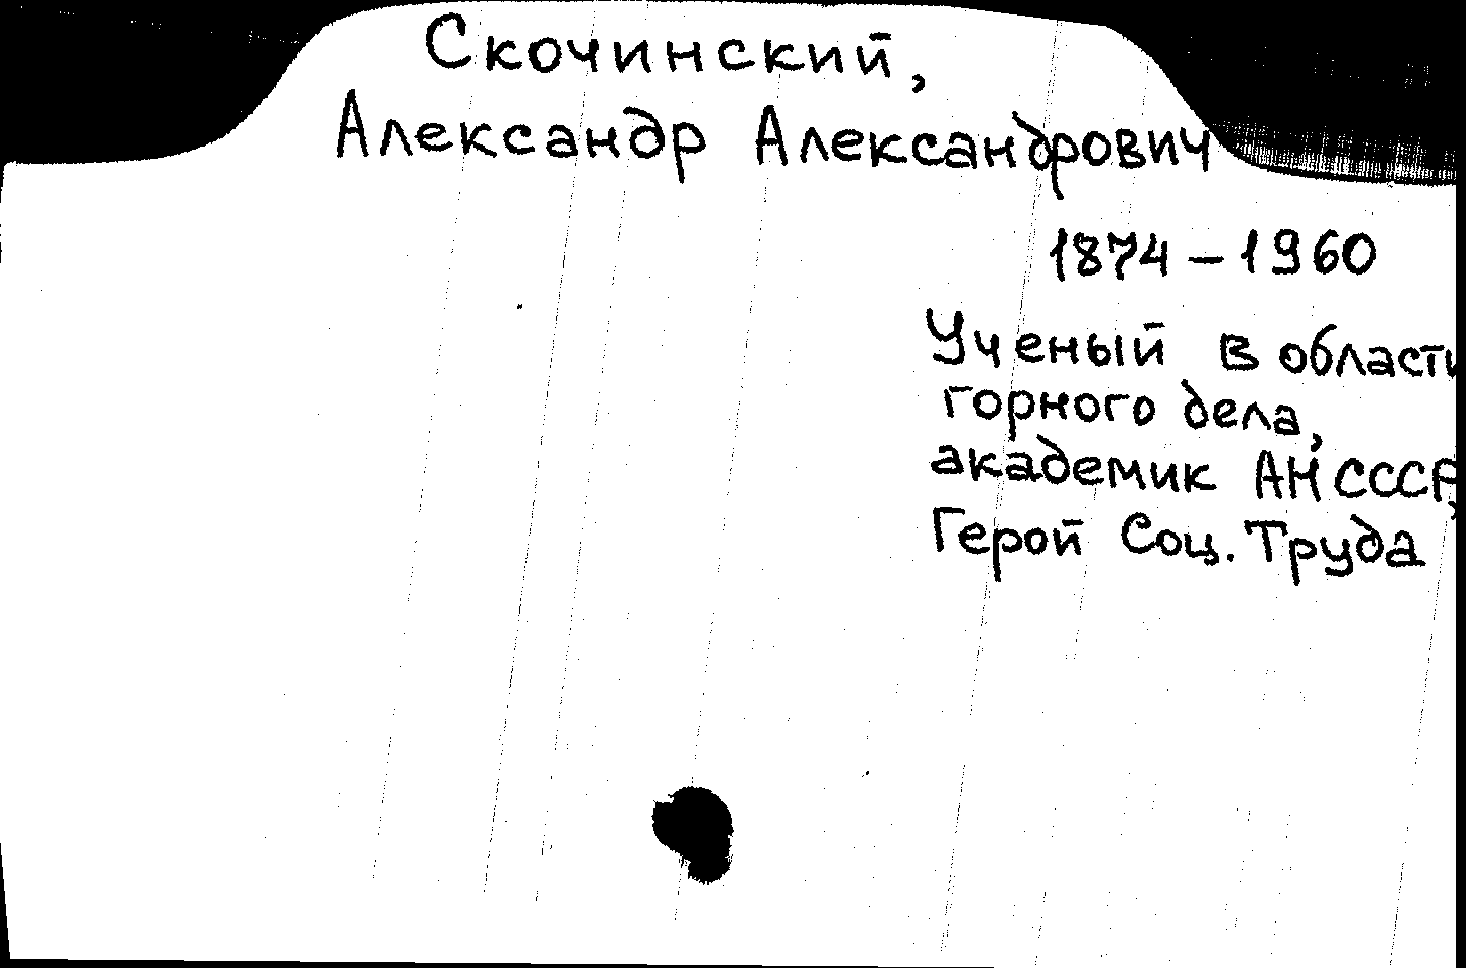 Скочинский,
Александр Александрович
1874 – 1960
Ученый в области
горного дела,
академик АН СССР,
Герой Соц. Труда